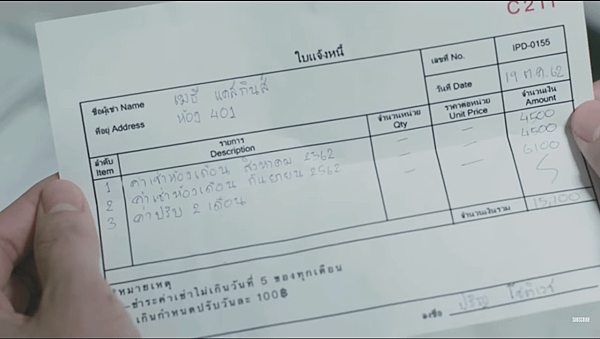 C211
ใบแจ้งหนี้
เลขที่ No. IPD-0155
ชื่อผู้เช่า Name เมธี
วันที่ Date 19 ต.ค. 62
ที่อยู่ Address ห้อง 401
ลำดับ Item รายการ Description จำนวนหน่วย Qty ราคาต่อหน่วย Unit Price จำนวนเงิน Amount
1 ค่าเช่าห้องเดือน สิงหาคม 2562 - - 4500
2 ค่าเช่าห้องเดือน กันยายน 2562 - - 4500
3 ค่าปรับ 2 เดือน - - 6100
จำนวนเงินรวม 15,100
*หมายเหตุ
-ชำระค่าเช่าไม่เกินวันที่ 5 ของทุกเดือน
เกินกำหนดปรับวันละ 100฿
ลงชื่อ ปริญ โชติเวช